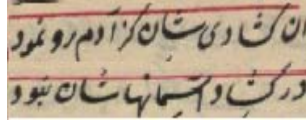 ان کشادی شان کز آدم رو نمود
در کشاد آسمانها شان نبود